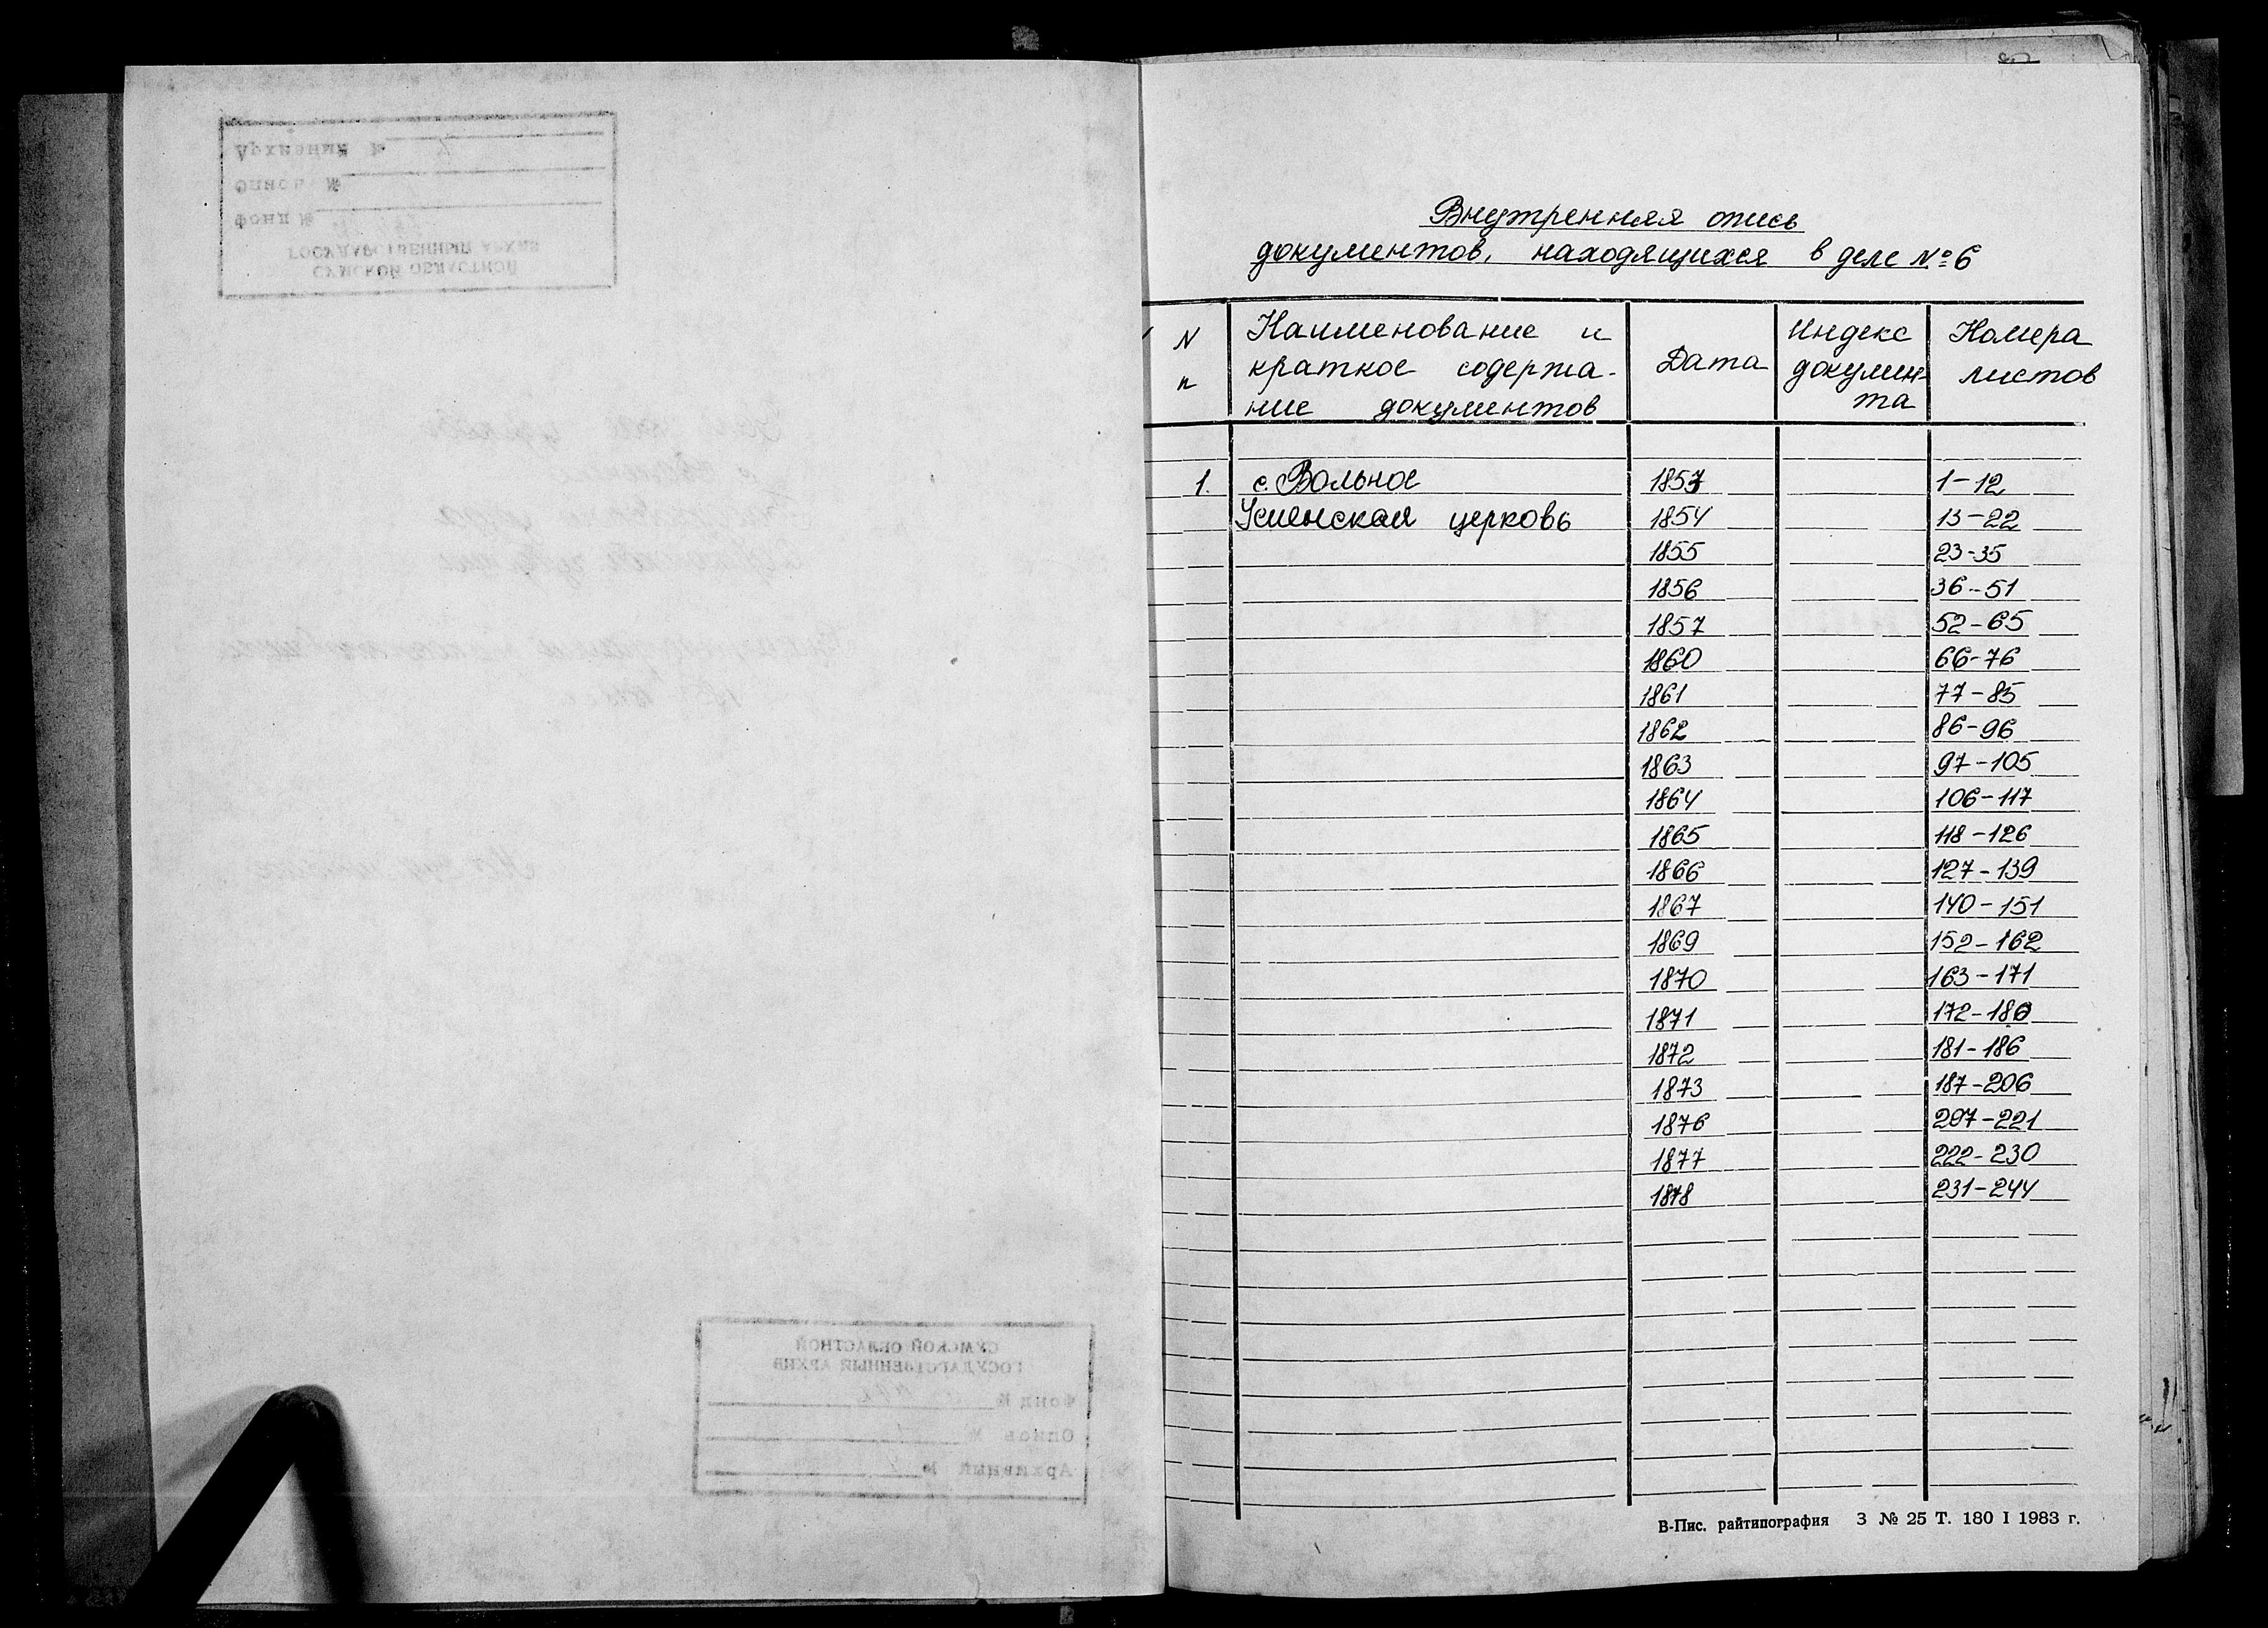 СУМСКОЙ ОБЛАСТНОЙ
ГОСУДАРСТВЕННЫЙ АРХИВ
Фонд №
Опись №
Архивный №
СУМСКОЙ ОБЛАСТНОЙ
ГОСУДАРСТВЕННЫЙ АРХИВ
Фонд №
Опись №
Архивный №
Внутренняя опись
документов, находящихся в деле № 6
N п Наименование и краткое содержа- ние документов Дата Индекс докумен- та Номера листов
1. с. Вольное 1853 1-12
Успенская церковь 1854 13-22
1855 23-35
1856 36-51
1857 52-65
1860 66-76
1861 77-85
1862 86-96
1863 97-105
1864 106-117
1865 118-126
1866 127-139
1867 140-151
1869 152-162
1870 163-171
1871 172-180
1872 181-186
1873 187-206
1876 207-221
1877 222-230
1878 231-244
В-Пис. райтипография З № 25 Т. 180 I 1983 г.